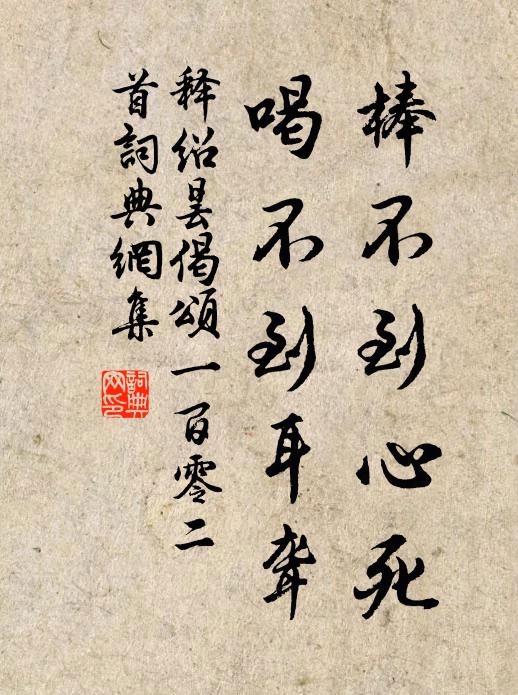 棒不到心死
喝不到耳聋
释绍昙偈頌一百零二
首詞典網集
詞典网印